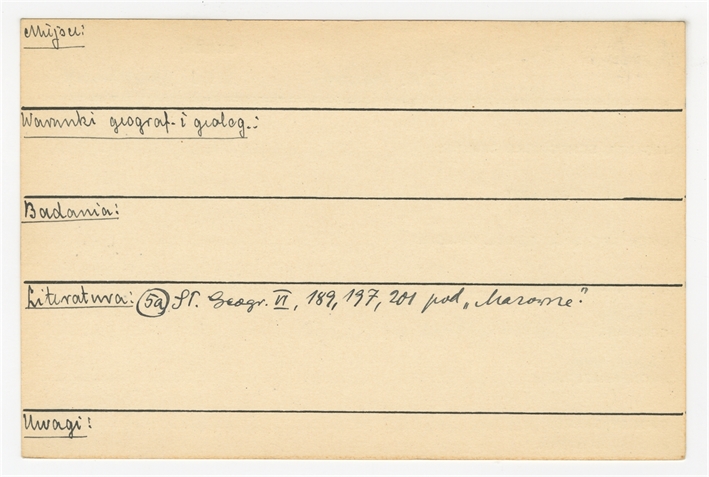 Miejsce:
Warunki geograf. i geolog.:
Badania:
Literatura: 5a Sł. Geogr. VI, 189, 197, 201 pod „Mazowsze”.
Uwagi: